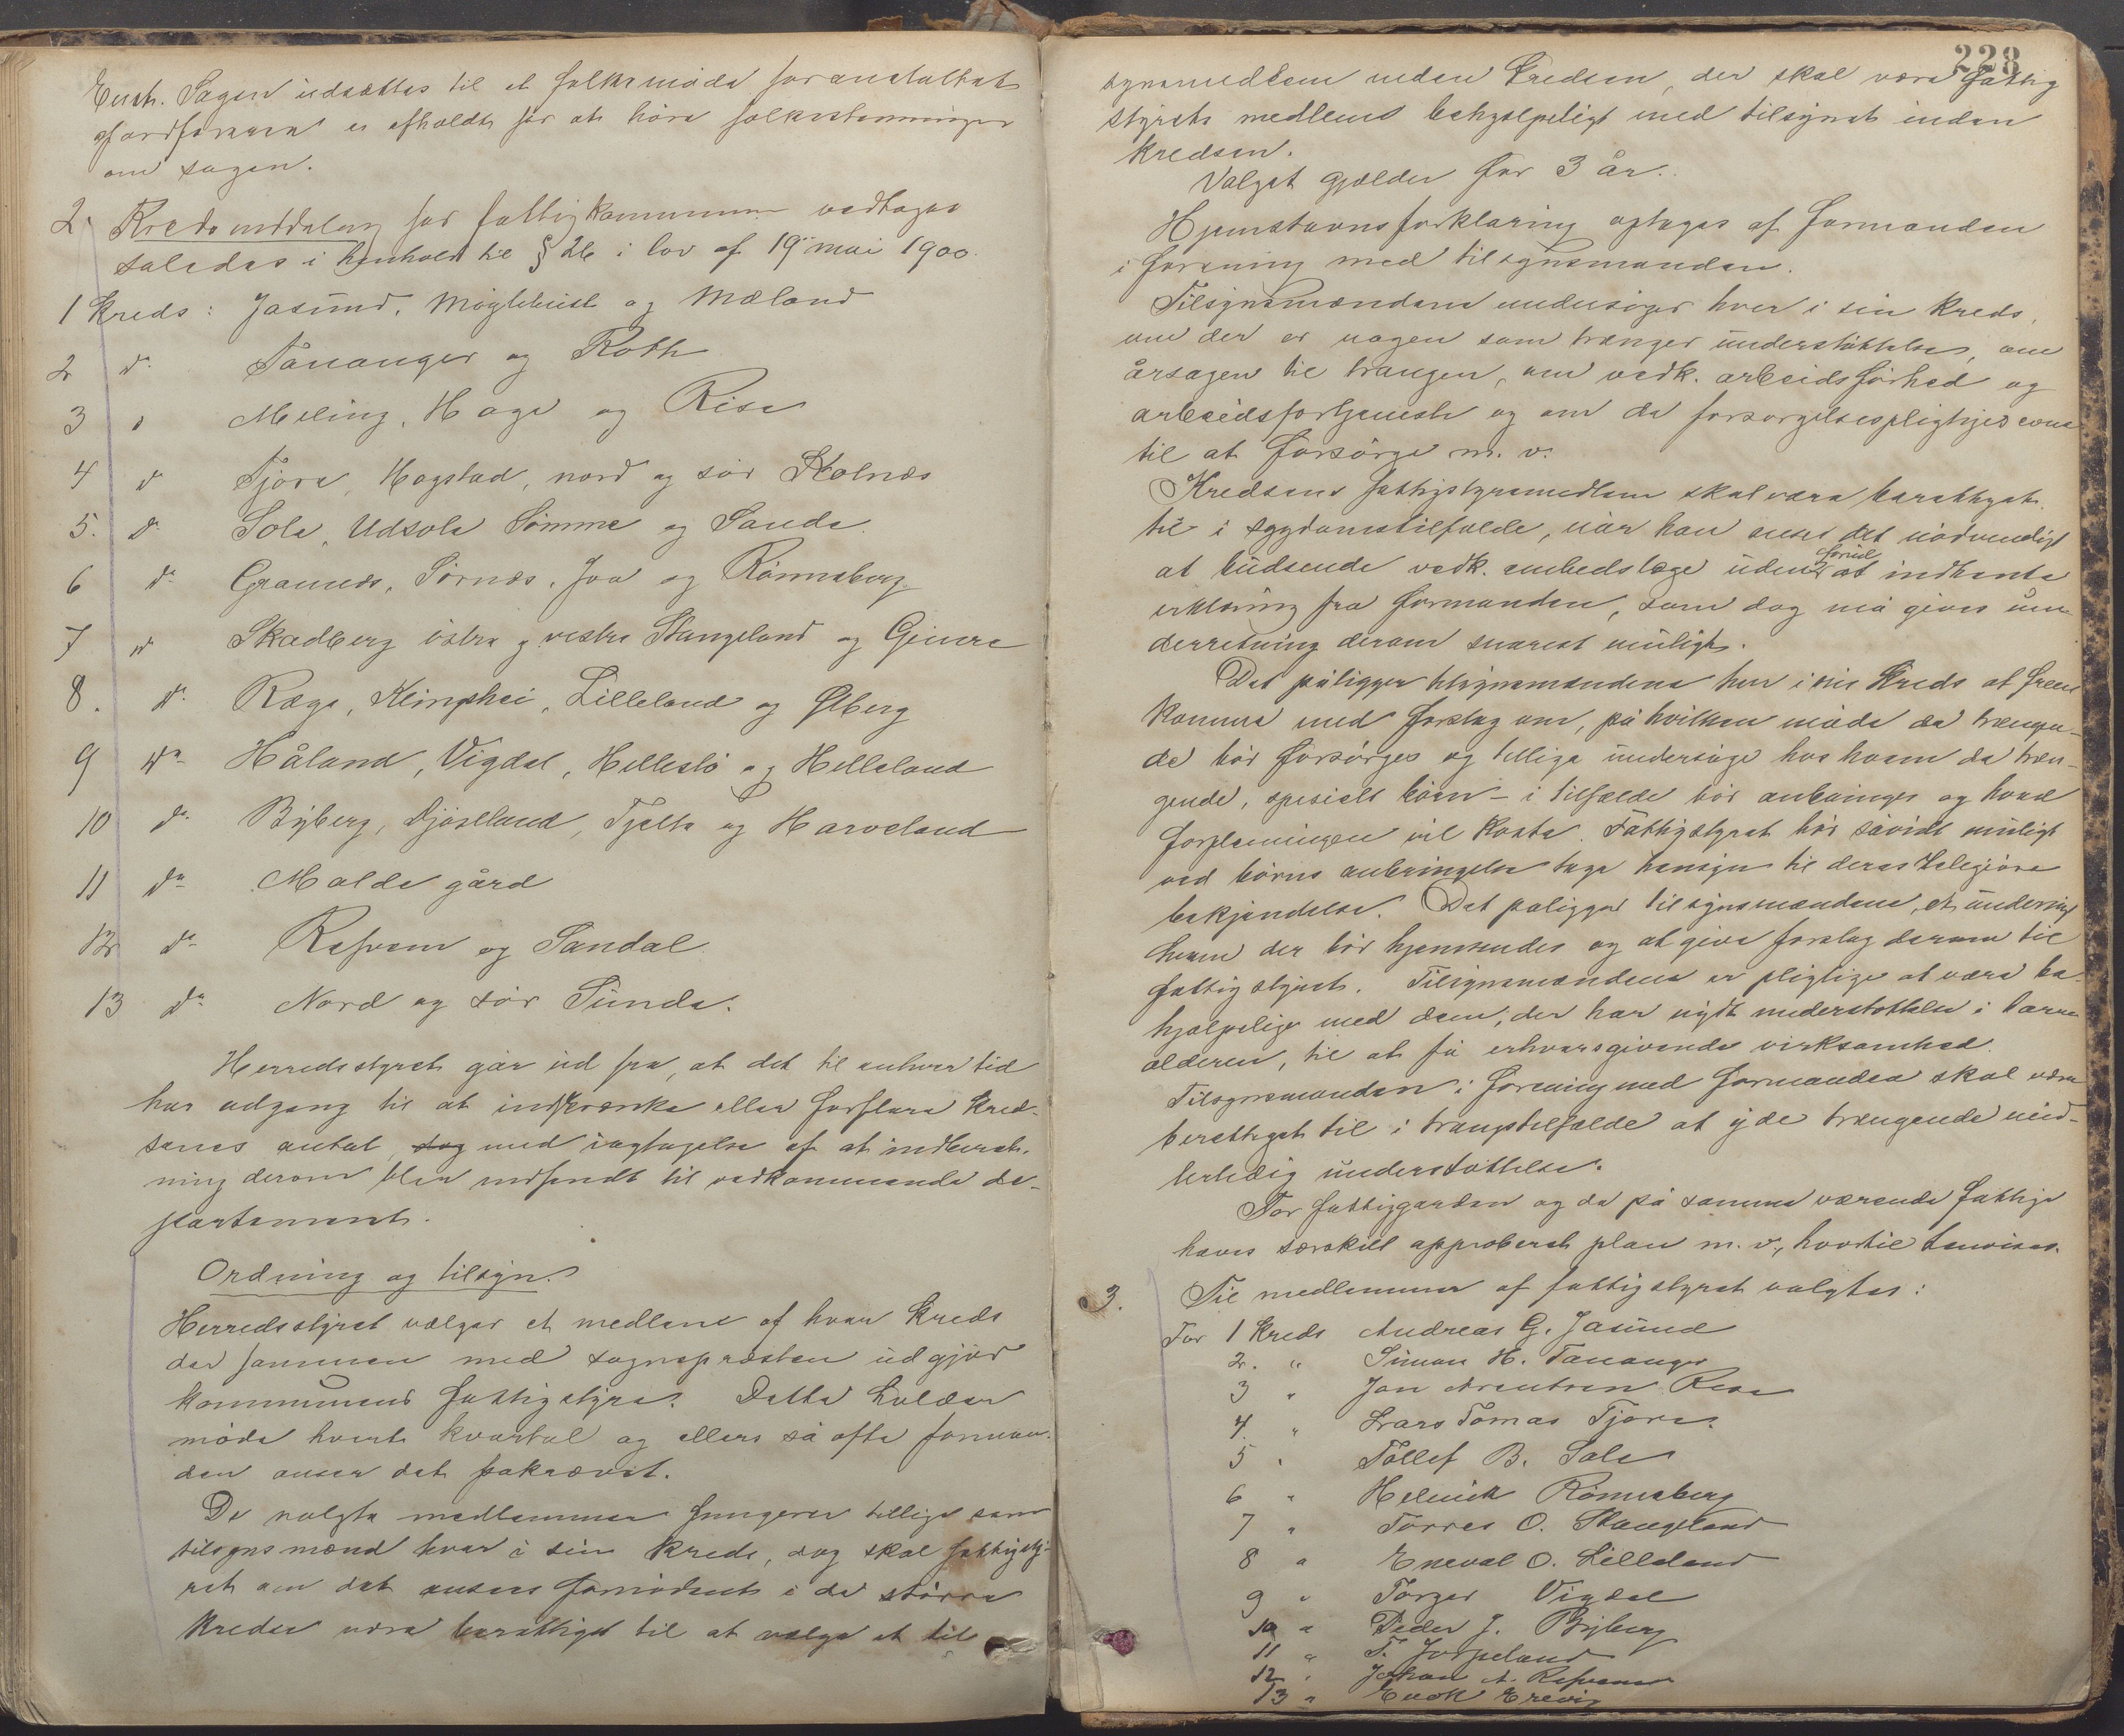 Enst. Sagen udsættes til et folkemøde foranstaltet
af ordføreren er afholdt før at høre folkestemningen
om sagen.
2. Kredsinddeling for fattigkommunen vedtages
saledes i henhold til § 26 i lov af 19 mai 1900.
1 Kreds: Jasund, Myglebust og Mæland
2 do. Tananger og Roth
3 " Meling, Haga og Risa
4 do Tjora, Hogstad, nord og sör Kolnæs
5. do. Sola, Udsola Sömme og Sande.
6 do. Grannæs, Sörnæs, Joa og Rönneberg.
7 do Skadberg östra g vestra Stangeland og Gimra
8. do. Ræge, Kleingshei, Lilleland og Ølberg
9 do. Håland, Vigdel, Hellestö og Helleland
10 do. Byberg, Djösland, Tjelta og Harveland
11 do Malde gård
12 do Refsnem og Sandal
13 do Nord og sör Sunde.
Herredsstyret går ud fra, at det til enhver tid
har adgang til at indskrænke eller forflere kred-
senes antal, med iagtagelse af at indberet-
ning derom blir indsendt til vedkommende de-
partement.
Ordning og tilsyn.
Herredsstyret vælger et medlem af hver kreds
der sammen med sognepræsten udgjör
kommunens fattigstyre. Dette holder
möde hvert kvartal og ellers så ofte forman-
den anser det pakrævet.
De valgte medlemmer fungerer tillige som
tilsynsmænd hver i sin kreds, dog skal fattigsty-
ret om det ansees fornödent i de större
kredse være berettiget til at vælge et til
228
synsmedlem inden kredsen, der skal være fattig
styrets medlem behjælpeligt med tilsynet inden
kredsen.
Valget gjælder for 3 år.
Hjemstavnsforklaring optages af formanden
i forening med tilsynsmanden.
Tilsynsmændene undersöger hver i sin kreds,
om der er nogen som trænger understöttelse, om
årsagen til trangen, om vedk. arbeidsförhed og
arbeidsfortjeneste og om de forsorgelsespligtiges evne
til at forsörge m. v.
Kredsens fattigstyremedlem skal være berettiget
til i sygdomstilfælde, når han anser det nödvendigt
at budsende vedk. embedslæge uden forud at indhente
erklæring fra formanden, som dog må gives un-
derretning derom snarest muligt.
Det påligger tilsynsmændene hver i sin kreds at frem
komme med forslag om, på hvilken måde de trængen-
de bör forsörges og tillige undersöge hos hvem de træn-
gende, spesielt börn - i tilfælde bör anbringes og hvad
forpleiningen vil koste. Fattigstyret bör såvidt muligt
ved börns anbringelse tage hensyn til deres religiöse
bekjendelse. Det paligger tilsynsmændene, at undersöge
hvem der bör hjemsendes og at give forslag derom til
fattigstyret. Tilsynsmændene er pligtige at være be-
hjælpelige med dem, der har nydt understöttelse i barne
alderen, til at få erhvervsgivende virksomhed.
Tilsynsmanden i forening med formanden skal være
berettiget til i trangstilfælde at yde trængende mid-
lertidig understöttelse.
For fattiggarden og de på samme værende fattige
haves særskilt approberet plan m. v., hvortil henvises.
3. Til medlemmer af fattigstyret valgtes:
For 1 kreds Andreas G. Jasund
2. " Simon H. Tananger
3 " Jon Arentsen Risa
4. " Lars Tomas Tjora.
5 " Tollef B. Sola
6 " Helmik Rönneberg
7 " Torres O. Stangeland
8 " Eneval O. Lilleland
9 " Torger Vigdel
10 " Peder J. Byberg
11 " T. Jorpeland
12 " Johan A. Refsnem
13 " Enok Erevig